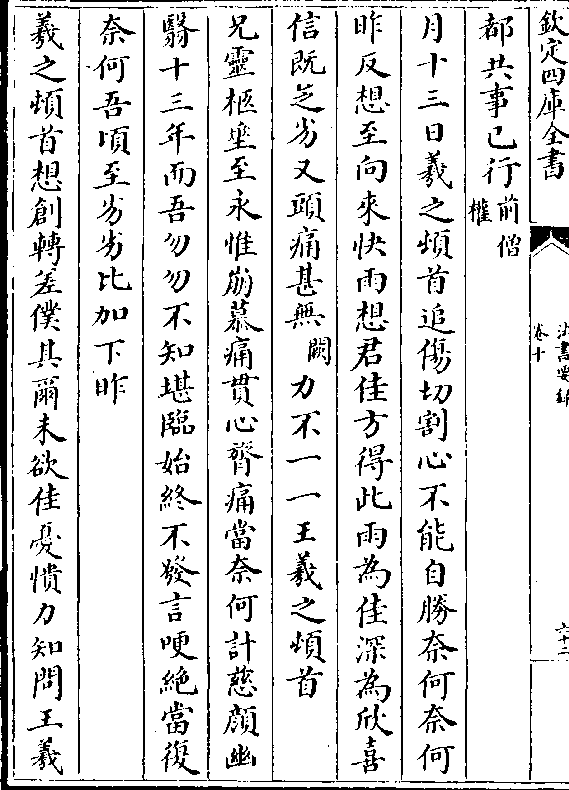 欽定四庫全書
法書要錄
卷十
六十二
都共事已行前僧權
月十三日羲之頓首追傷切割心不能自勝奈何奈何
昨反想至向來快雨想君佳方得此雨為佳深為欣喜
信既乏劣又頭痛甚無闕力不一一王羲之頓首
兄靈柩垂至永惟崩慕痛貫心膂痛當奈何計慈顏幽
翳十三年而吾勿勿不知堪臨始終不發言哽絕當復
奈何吾頃至劣劣比加下昨
羲之頓首想創轉差僕其爾未欲佳憂憒力知問王羲